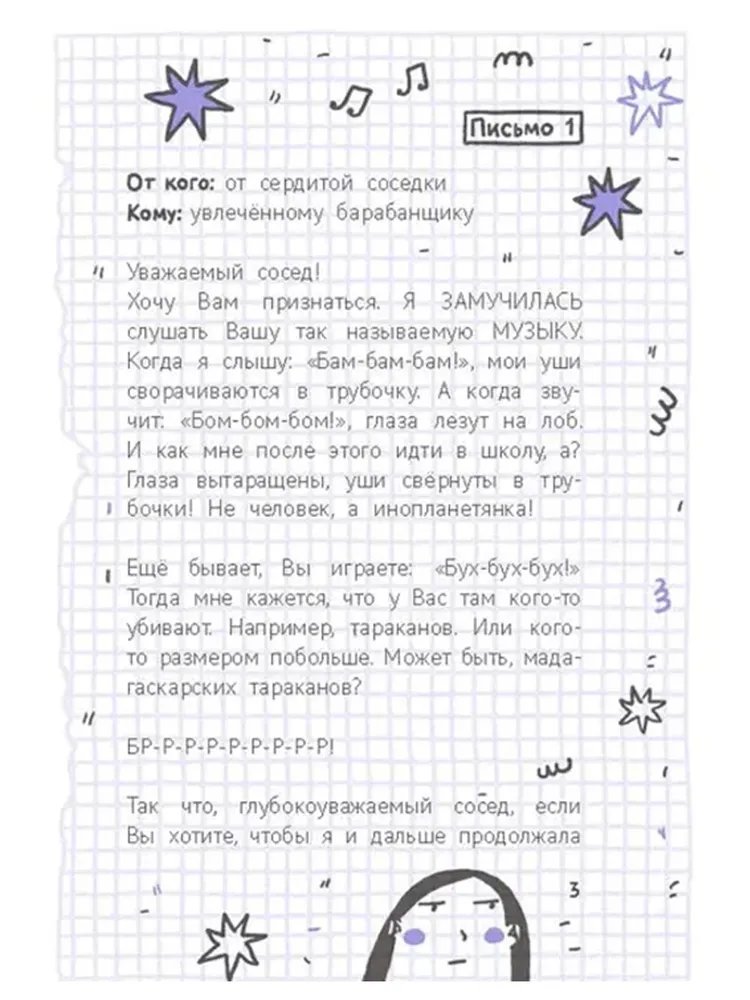 Письмо 1
От кого: от сердитой соседки
Кому: увлечённому барабанщику
Уважаемый сосед!
Хочу Вам признаться. Я ЗАМУЧИЛАСЬ
слушать Вашу так называемую МУЗЫКУ.
Когда я слышу: «Бам-бам-бам!», мои уши
сворачиваются в трубочку. А когда зву-
чит: «Бом-бом-бом!», глаза лезут на лоб.
И как мне после этого идти в школу, а?
Глаза вытаращены, уши свёрнуты в тру-
бочки! Не человек, а инопланетянка!
Ещё бывает, Вы играете: «Бух-бух-бух!»
Тогда мне кажется, что у Вас там кого-то
убивают. Например, тараканов. Или кого-
то размером побольше. Может быть, мада-
гаскарских тараканов?
БР-Р-Р-Р-Р-Р-Р-Р-Р!
Так что, глубокоуважаемый сосед, если
Вы хотите, чтобы я и дальше продолжала
3